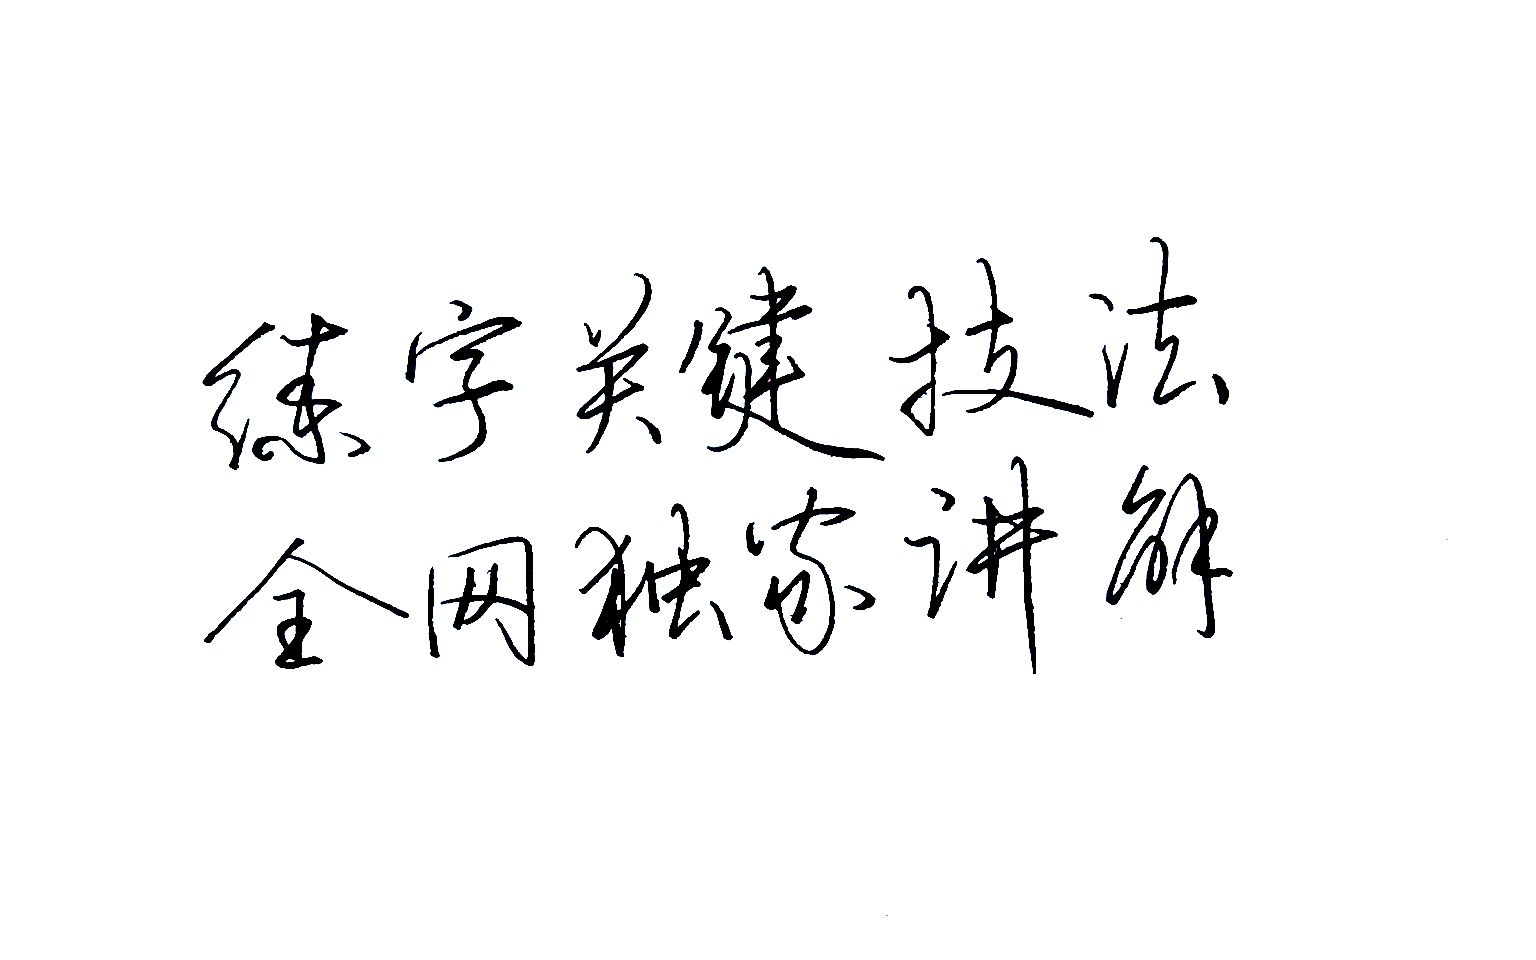 练字关键技法
全网独家讲解